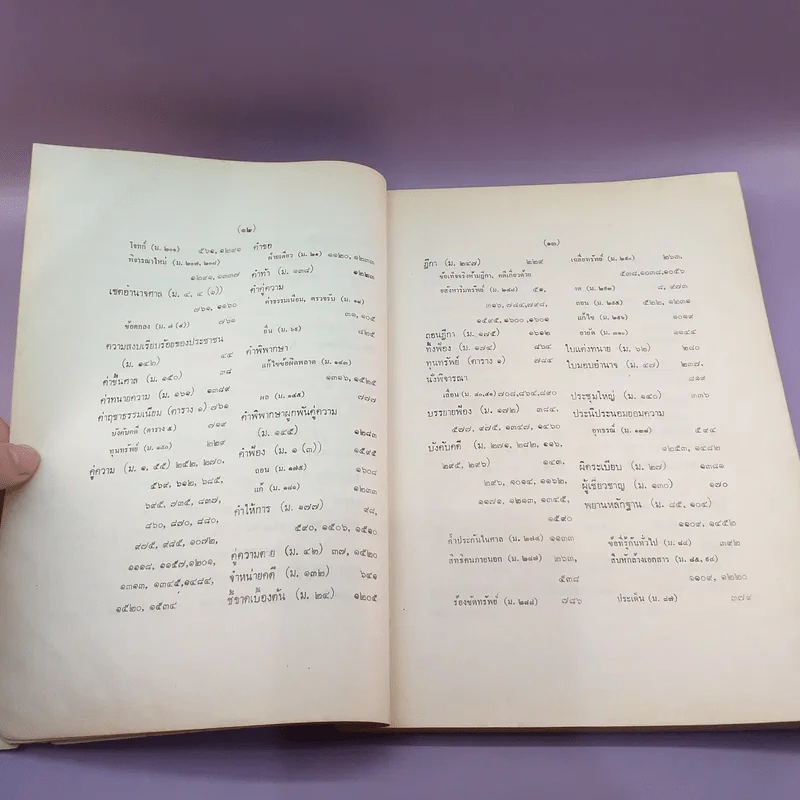 (๑๒)
โจทก์ (ม. ๒๐๑) ๕๖๑, ๑๒๔๑
พิจารณาใหม่ (ม. ๒๐๗, ๒๐๘)
๑๒๔๑, ๑๓๓๗
เขตอำนาจศาล (ม. ๔, ๕ (๑))
๗๖๑, ๑๑๖๐
ข้อตกลง (ม. ๗ (๑)) ๗๖๑
ความสงบเรียบร้อยของประชาชน
(ม. ๑๔๒) ๔๔
ค่าขึ้นศาล (ม. ๑๕๐) ๓๘
ค่าทนายความ (ม. ๑๖๑) ๑๓๘๙
ค่าฤชาธรรมเนียม (ตาราง ๑) ๗๖๑
บังคับคดี (ตาราง ๕) ๗๑๙
ทุนทรัพย์ (ม. ๑๕๐) ๒๒๙
คู่ความ (ม. ๑, ๕๕) ๒๕๒, ๒๗๐,
๕๖๙, ๖๑๒, ๖๘๕,
๖๙๕, ๗๓๕, ๘๓๗,
๘๖๐, ๘๗๐, ๘๘๐,
๙๗๕, ๙๘๕, ๑๐๗๒,
๑๑๑๘, ๑๑๕๗,๑๒๐๑,
๑๓๑๓, ๑๓๔๕,๑๔๘๔,
๑๕๒๐, ๑๕๓๔
คำขอ
ฝ่ายเดียว (ม. ๒๑) ๑๑๒๐, ๑๒๓๓
คำท้า (ม. ๑๓๘) ๑๒๒๓
คำคู่ความ
ค่าธรรมเนียม, ตรวจรับ (ม. ๑๘)
๓๑, ๑๐๕
ยื่น (ม. ๖๙) ๘๒๕
คำพิพากษา
แก้ไขข้อผิดพลาด (ม. ๑๔๓)
๑๓๑๖, ๑๕๒๕
ผล (ม. ๑๔๕) ๗๗๗
คำพิพากษาผูกพันคู่ความ
(ม. ๑๔๕) ๑๒๘๓
คำฟ้อง (ม. ๑ (๓)) ๑๕๙๕
ถอน (ม. ๑๗๕) ๑๖๐๘
แก้ (ม. ๑๘๑) ๑๒๓๓
คำให้การ (ม. ๑๗๗) ๙๘,
๕๙๐, ๑๕๐๖, ๑๕๑๐
คู่ความตาย (ม. ๔๒) ๓๗, ๑๕๒๐
จำหน่ายคดี (ม. ๑๓๒) ๖๔๑
ชี้ขาดเบื้องต้น (ม. ๒๔) ๑๒๐๕
(๑๓)
ฎีกา (ม. ๒๔๗) ๒๒๙
ข้อเท็จจริงห้ามฎีกา, คดีเกี่ยวด้วย
อสังหาริมทรัพย์ (ม. ๒๔๘) ๕๑,
๓๑๖, ๗๘๔,๗๙๘,
๑๕๙๕, ๑๖๐๐ ,๑๖๐๑
ถอนฎีกา (ม. ๑๗๕) ๑๖๑๒
ทิ้งฟ้อง (ม. ๑๗๔) ๘๖๔
ทุนทรัพย์ (ตาราง ๑) ๗๘๔
นั่งพิจารณา
เลื่อน (ม. ๔๐,๔๑) ๗๐๘,๘๖๔,๘๙๐
บรรยายฟ้อง (ม. ๑๗๒) ๓๘๔,
๕๗๗, ๙๗๕, ๑๓๔๗, ๑๔๖๐
บังคับคดี (ม. ๒๗๑, ๒๘๒, ๑๑๖,
๒๙๕, ๒๙๖) ๑๔๓,
๒๙๖, ๑๐๑๔, ๑๑๖๒,
๑๑๗๑, ๑๒๑๓, ๑๓๔๕,
๑๕๙๐
ค้ำประกันในศาล (ม. ๒๗๔) ๑๑๓๓
สิทธิคนภายนอก (ม. ๒๘๗) ๒๖๓,
๕๓๘
ร้องขัดทรัพย์ (ม. ๒๘๘) ๗๘๖
เฉลี่ยทรัพย์ (ม. ๒๙๐) ๒๖๓,
๕๓๘,๑๐๓๘,๑๐๕๖
งด (ม. ๒๙๓) ๘, ๙๗๓
ถอน (ม. ๒๙๕) ๕๒๒, ๑๒๓๑
แก้ไข (ม. ๒๙๖) ๑๐๑๙
อายัด (ม. ๓๑๐) ๑๑๔๔
ใบแต่งทนาย (ม. ๖๒) ๒๘๐
ใบมอบอำนาจ (ม. ๔๗) ๒๓๗,
๘๑๙
ประชุมใหญ่ (ม. ๑๔๐) ๓๓๖
ประนีประนอมยอมความ
อุทธรณ์ (ม. ๑๓๘) ๕๙๔
๑๒๕๓, ๑๔๘๒
ผิดระเบียบ (ม. ๒๗) ๑๓๘๑
ผู้เชี่ยวชาญ (ม. ๑๓๐) ๑๗๐
พยานหลักฐาน (ม. ๘๕, ๑๐๔)
๑๑๐๙, ๑๔๕๒
ข้อที่รู้กันทั่วไป (ม. ๘๔) ๓๙๒
สืบหักล้างเอกสาร (ม. ๘๕, ๙๔)
๑๑๐๙, ๑๒๒๐
ประเด็น (ม. ๘๗) ๓๗๙